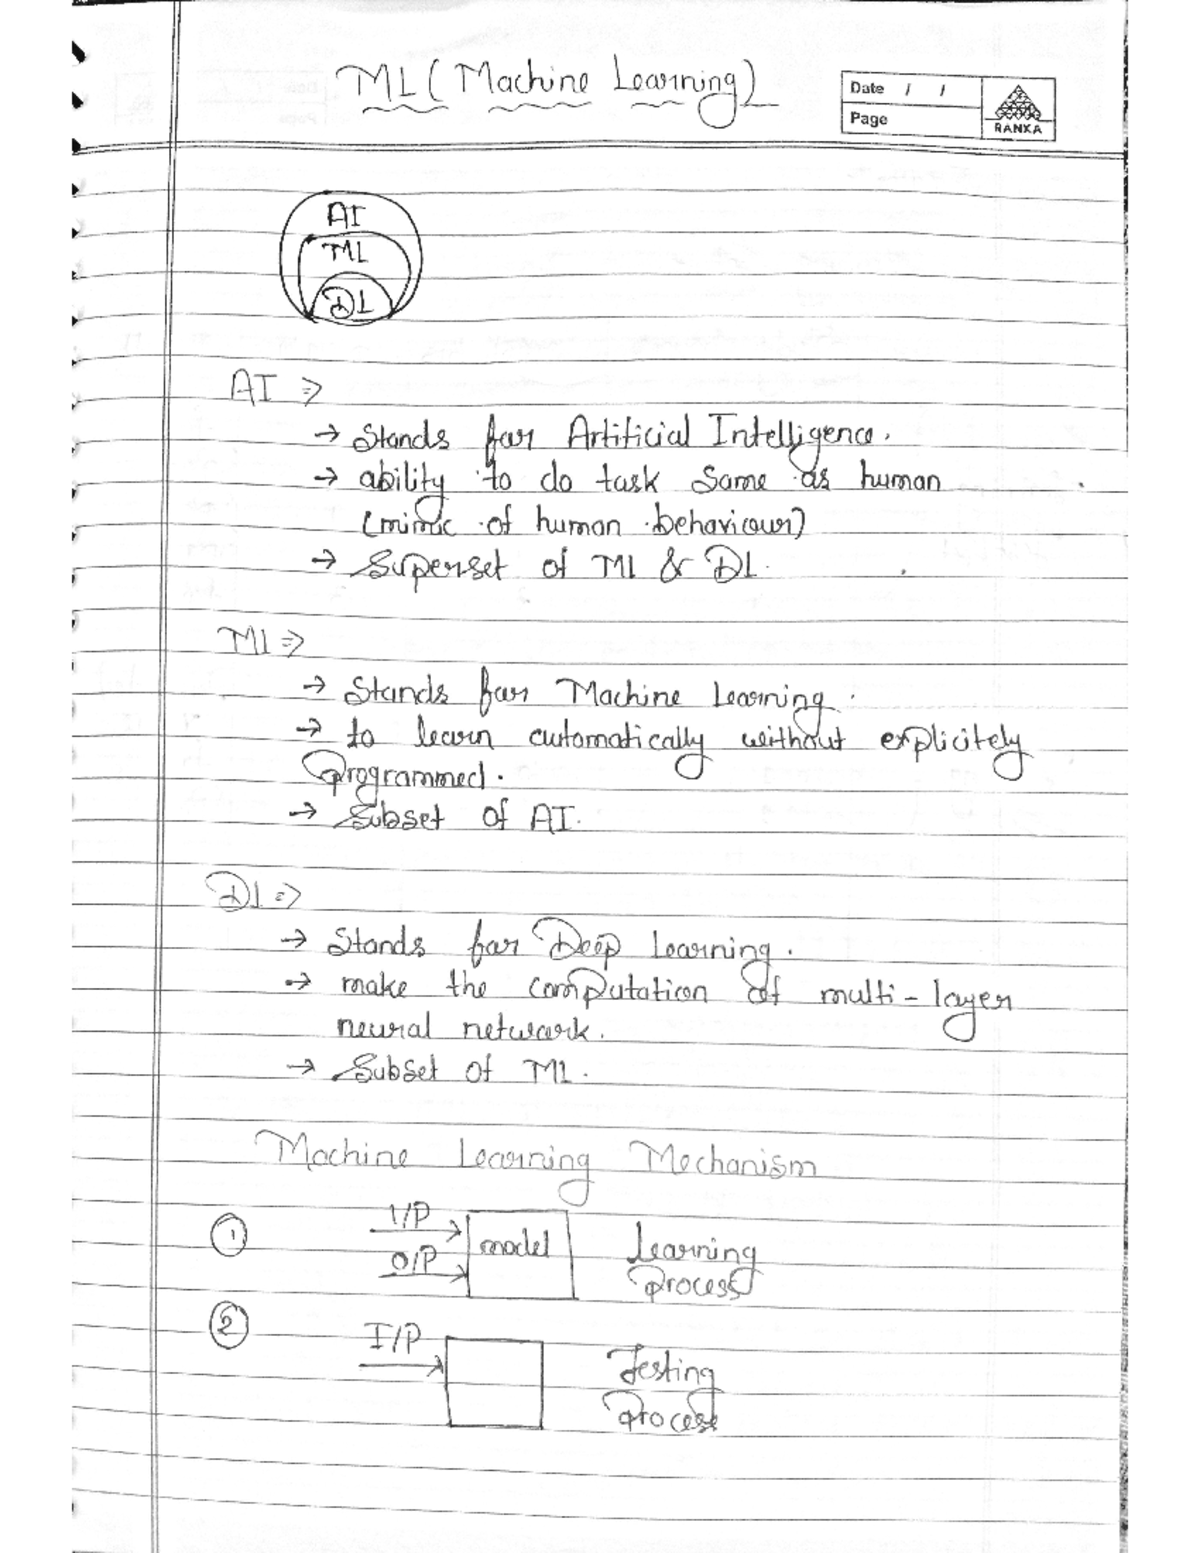 ML (Machine Learning)
Date / /
Page
RANKA
AI
ML
DL
AI ⇒
→ Stands for Artificial Intelligence.
→ ability to do task same as human
(mimic of human behaviour)
→ Superset of ML & DL.
ML ⇒
→ Stands for Machine Learning.
→ to learn automatically without explicitely
programmed.
→ Subset of AI.
DL ⇒
→ Stands for Deep Learning.
→ make the computation of multi-layer
neural network.
→ Subset of ML.
Machine Learning Mechanism
① I/P O/P model Learning
process
② I/P Testing
process